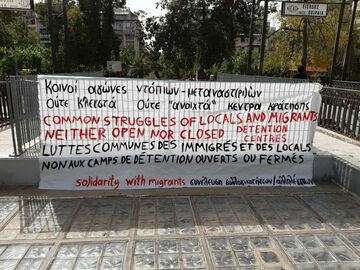 ΕΙΣΟΔΟΣ
Κοινοί αγώνες ντόπιων-μεταναστ(ρι)ών
Ούτε κλειστά Ούτε "ανοιχτά" κέντρα κράτησης
COMMON STRUGGLES OF LOCALS AND MIGRANTS
NEITHER OPEN NOR CLOSED DETENTION CENTRES
LUTTES COMMUNES DES IMMIGRÉS ET DES LOCALS
NON AUX CAMPS DE DÉTENTION OUVERTS OU FERMÉS
solidarity with migrants συνέλευση